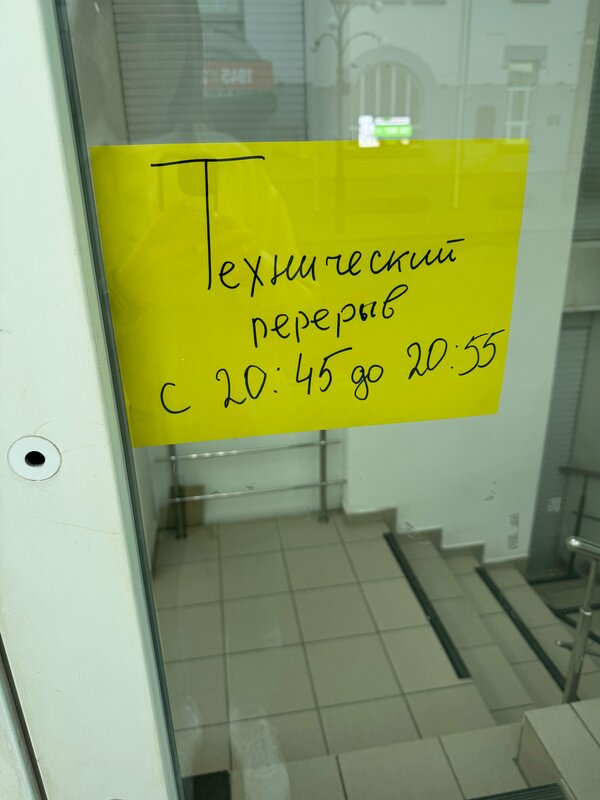 1945
Технический
перерыв
с 20:45 до 20:55